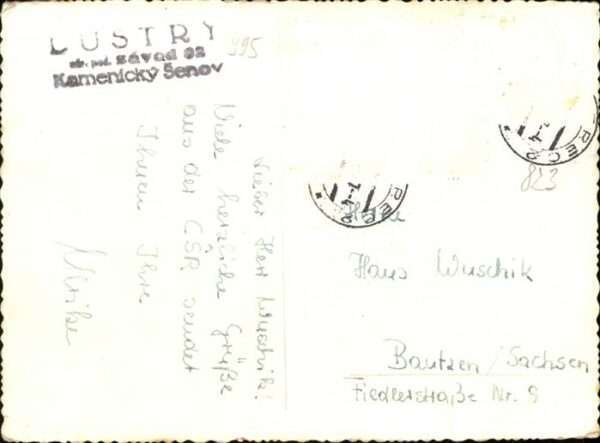 LUSTRY
nár. pod. závod 02
Kamenický Šenov
995
Lieber Herr Wuschik!
Viele herzliche Grüße
aus der ČSR sendet
Ihnen Ihre
823
Hans Wuschik
Bautzen/Sachsen
Fiedlerstraße Nr. 9